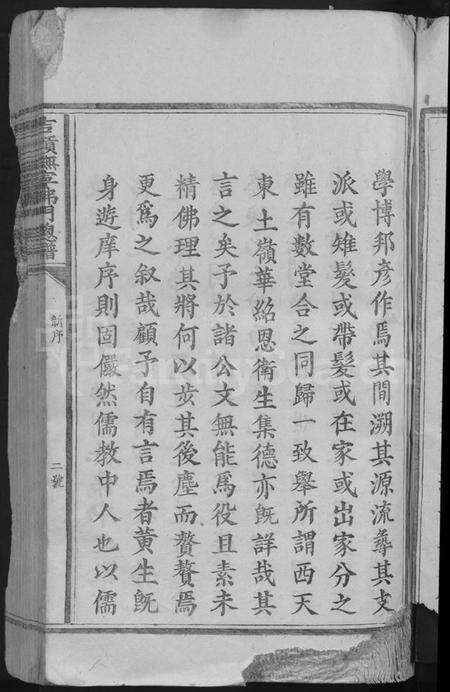 學博邦彥作焉其間溯其源流彝其支
派或雉髮或帶髮或在家或出家分之
雖有數堂合之同歸一致舉所謂西天
東土嶺華紹恩衛生集德亦旣詳哉其
言之矣予於諸公文無能爲役且素未
精佛理其將何以步其後塵而贅贅焉
更爲之叙哉顧予自有言焉者黃生旣
身遊庠序則固儼然儒教中人也以儒
新序
二號